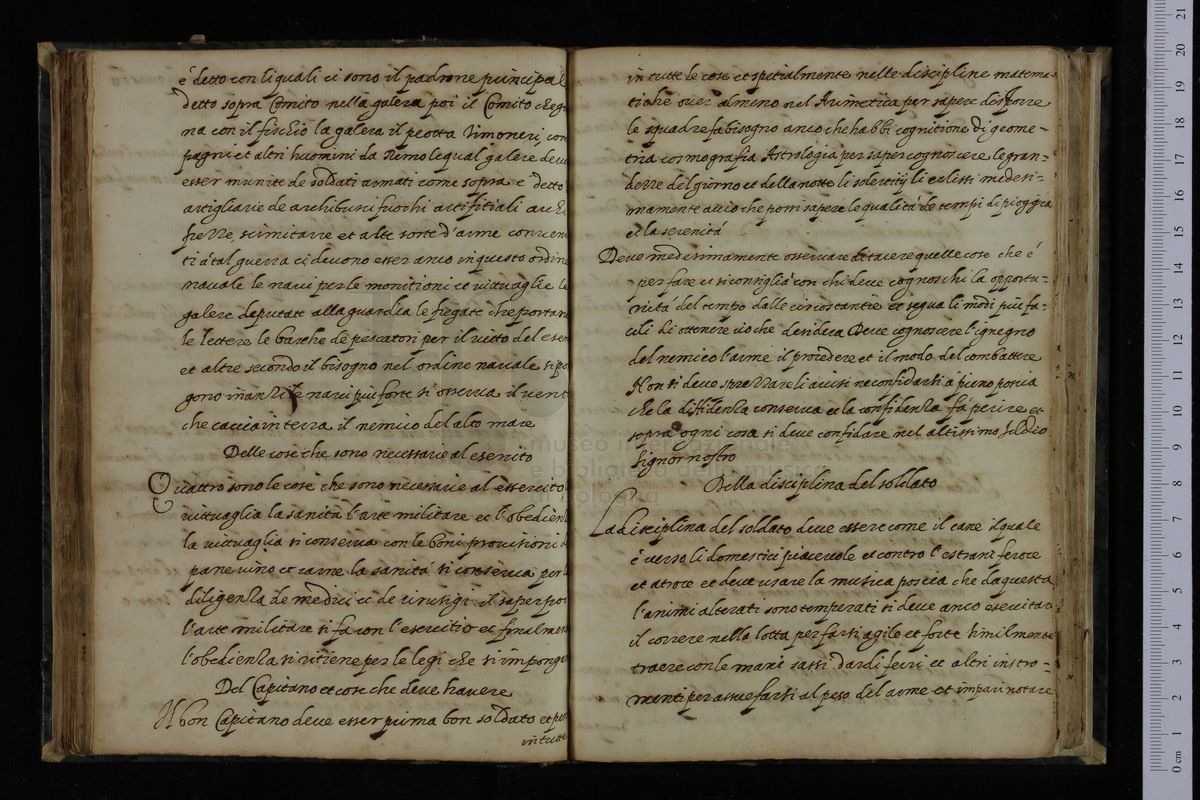 è detto con li quali ci sono il padrone principal
detto sopra Comito nella galera poi il Comito che
na con il fischio la galera il peotta timoneri, com
pagni et altri huomini da remo le qual galere deve
esser munite de soldati armati come sopra è detto
artigliarie de archibusi fuochi artifitiali archi
frezze, scimitarre et alte sorte d'arme convenien
ti à tal guerra ci devono esser anco in questo ordine
navale le nave per le monitioni et vittuaglie le
galere deputate alla guardia le fregate che portan
le lettere le barche de pescatori per il vitto del eser
et altre secondo il bisogno nel ordine navale si po
gono inanzi le navi piu forte si osserva il vent
che caccia in terra il nemico del alto mare
Delle cose che sono necessarie al esercito
Quattro sono le cose che sono necessarie al essercito
vittuaglia la sanità l'arte militare et l'obedien
la vittuaglia si conserva con le boni provisioni
pane vino et carne la sanità si conserva per
diligenza de medici et de cirusigi il
l'arte militare si fa con l'esercitio et finalmen
l'obedienza si ritiene per le legi che si impong
Del Capitano et cose che deve havere
Il bon Capitano deve esser prima bon soldato et
in tutte
in tutte le cose et spetialmente nelle discipline matema-
tiche over almeno nel Arimetica per sapere disporre
le squadre fa bisogno anco che habbi cognitione di geome-
tria cosmografia Astrologia per saper cognoscere le gran-
dezze del giorno et della notte li solestitij li eclissi medesi-
mamente acciò che possi sapere le qualità de tempi di pioggia
et la serenità
Deve medesimamente osservare di tacere quelle cose che è
per fare et si consiglia con chi deve cognoschi la opportu-
nità del tempo dalle circostantie et segua li modi più fa-
cili di ottenere ciò che desidera Deve cognoscere l'ignegno
del nemico l'arme il procedere et il modo del combattere
Non si deve sprezzare li avisi ne confidarsi à pieno poscia
che la diffidenza conserva et la confidenza fà perire et
sopra ogni cosa si deve confidare nel altissimo Iddio
signor nostro
Della disciplina del soldato
La disciplina del soldato deve essere come il cane il quale
è verso li domestici piacevole et contro l'estrani feroce
et atroce et deve usare la musica poscia che da questa
l'animi alterati sono temperati si deve anco esercitar
il correre nella lotta per farsi agile et forte similmente
traere con le mani sassi dardi ferri et altri instro-
menti per assuefarsi al peso del arme et impari notare
museo internazionale
e biblioteca della musica
bologna
0 cm 1 2 3 4 5 6 7 8 9 10 11 12 13 14 15 16 17 18 19 20 21